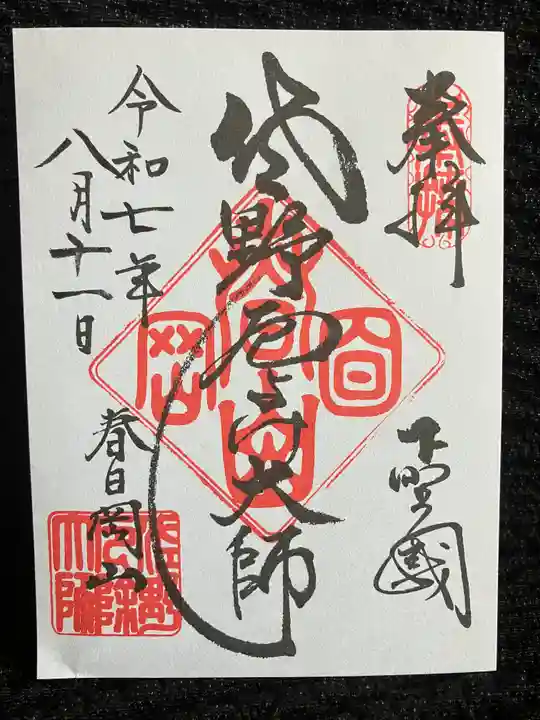 奉拝
下野國
佐野厄よけ大師
令和七年
八月十一日
春日岡山